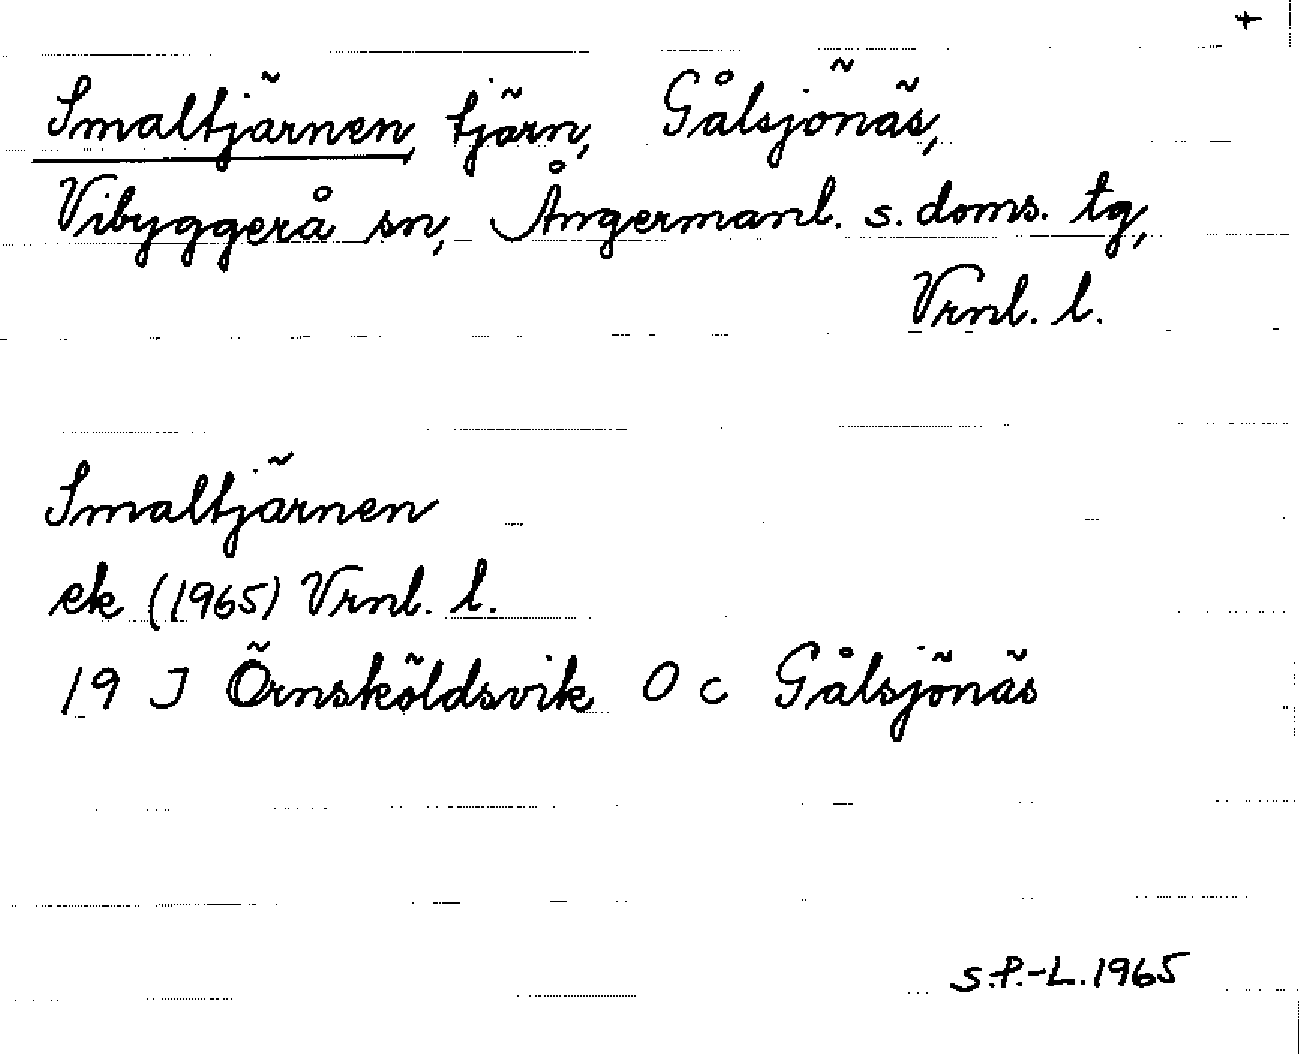 +
Smaltjärnen, tjärn, Gålsjönäs,
Vibyggerå sn, Ångermanl. s. doms. tg,
Vrnl. l.
Smaltjärnen
ek (1965) Vrnl. l.
19 J Örnsköldsvik O c Gålsjönäs
S.P.-L. 1965